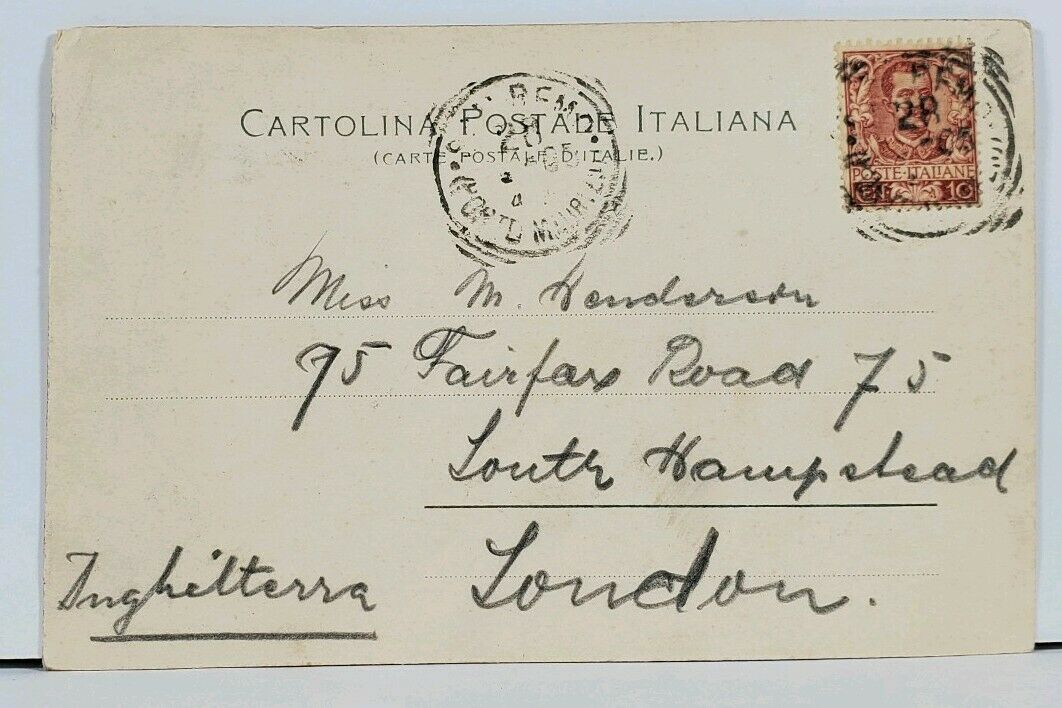 CARTOLINA POSTALE ITALIANA
(CARTE POSTALE D'ITALIE.)
REMO
28
05
PORTO MAURIZIO
28
05
POSTE·ITALIANE
10
Miss M. Henderson
75 Fairfax Road 75
South Hampstead
London.
Inghilterra